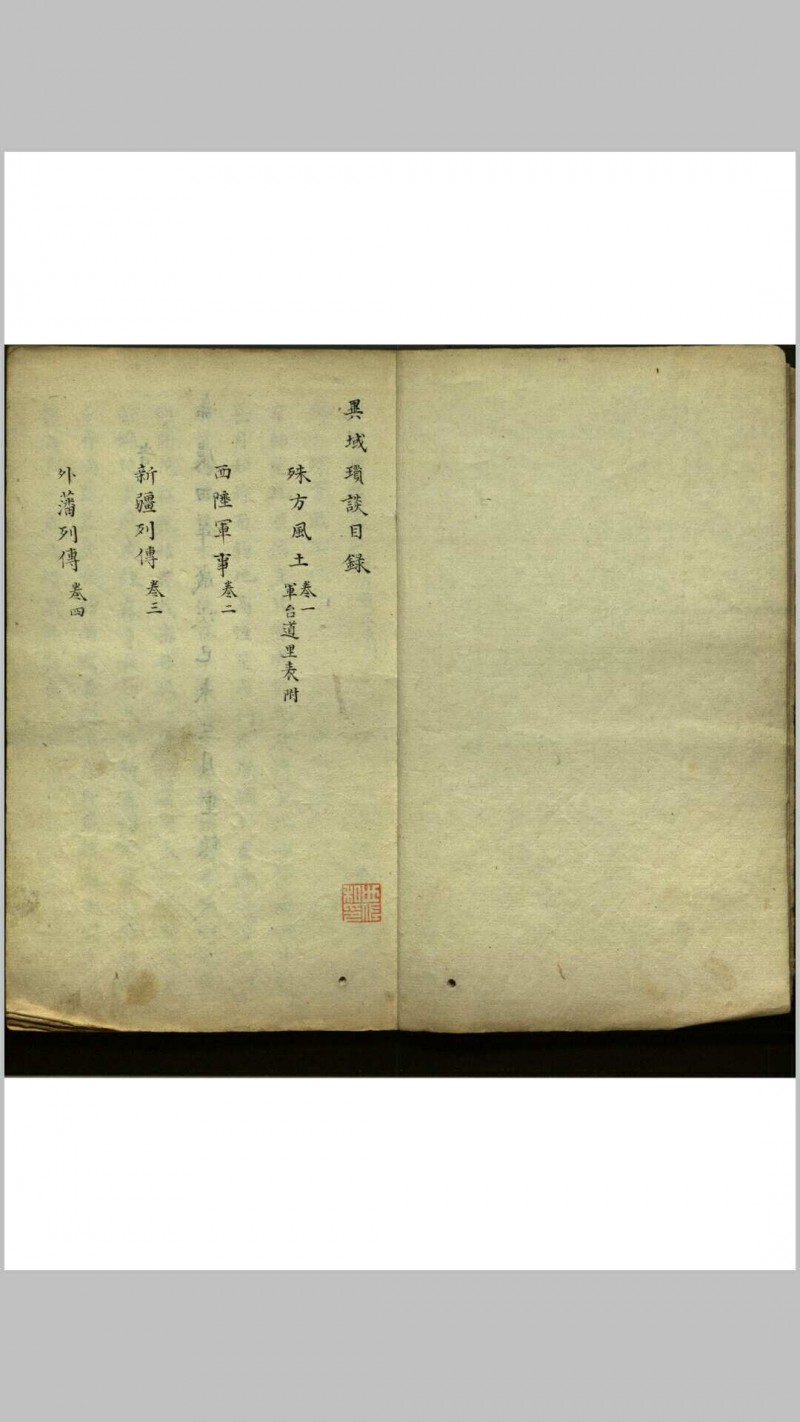 異域瑣談目録
殊方風土 卷一
軍台道里表附
西陲軍事 卷二
新疆列傳 卷三
外藩列傳 卷四